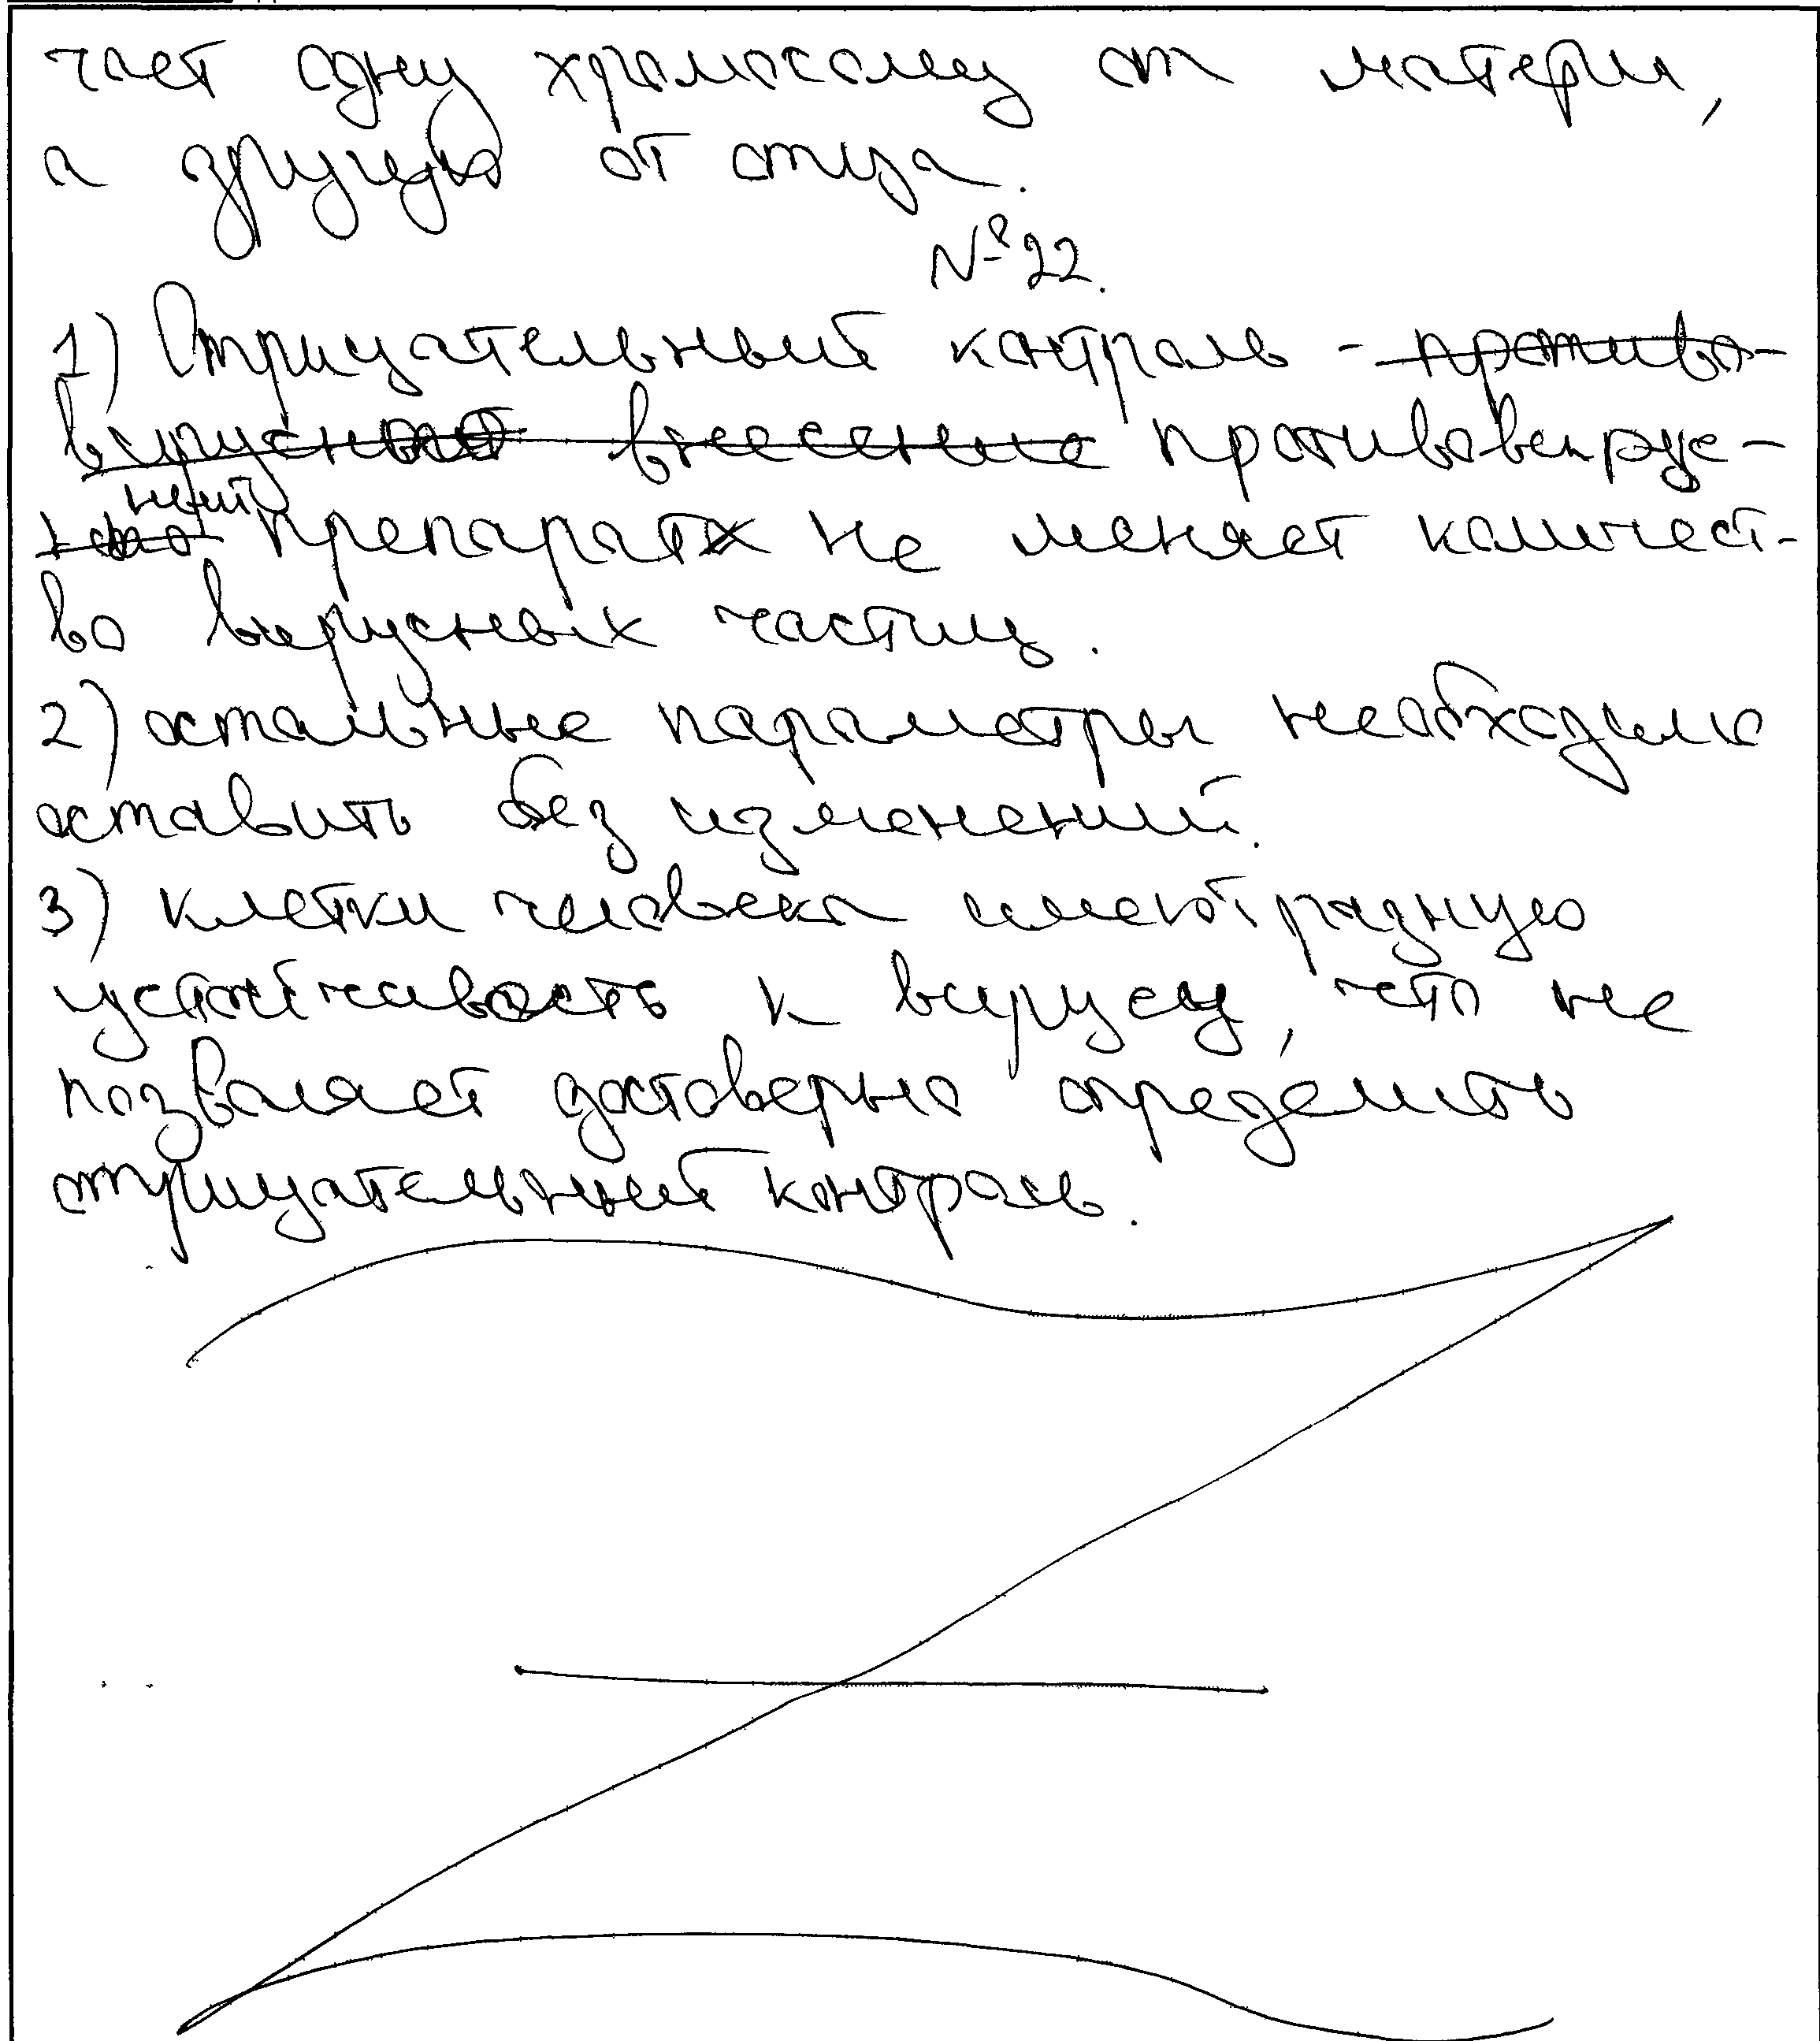 чает одну хромосому от матери,
а другую от отца.
№22.
1) Отрицательный контроль - противо-
вирусного внесение противовирус-
ный
ного препарата не меняет количест-
во вирусных частиц.
2) остальные параметры необходимо
оставить без изменений.
3) клетки человека имеют разную
устойчивость к вирусу, что не
позволяет достоверно определить
отрицательный контроль.